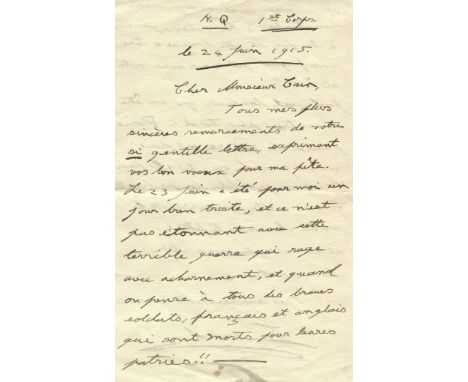 H. Q. 1st Corps
le 24 juin 1915.
Cher Monsieur Cain,
Tous mes plus
sincères remerciments de votre
si gentille lettre, exprimant
vos bon voeux pour ma fête.
Le 23 juin a été pour moi un
jour bien triste, et ce n'est
pas étonnant avec cette
terrible guerre qui rage
avec acharnement, et quand
on pense à tous des braves
soldats, français et anglais
qui sont morts pour leurs
patries!!